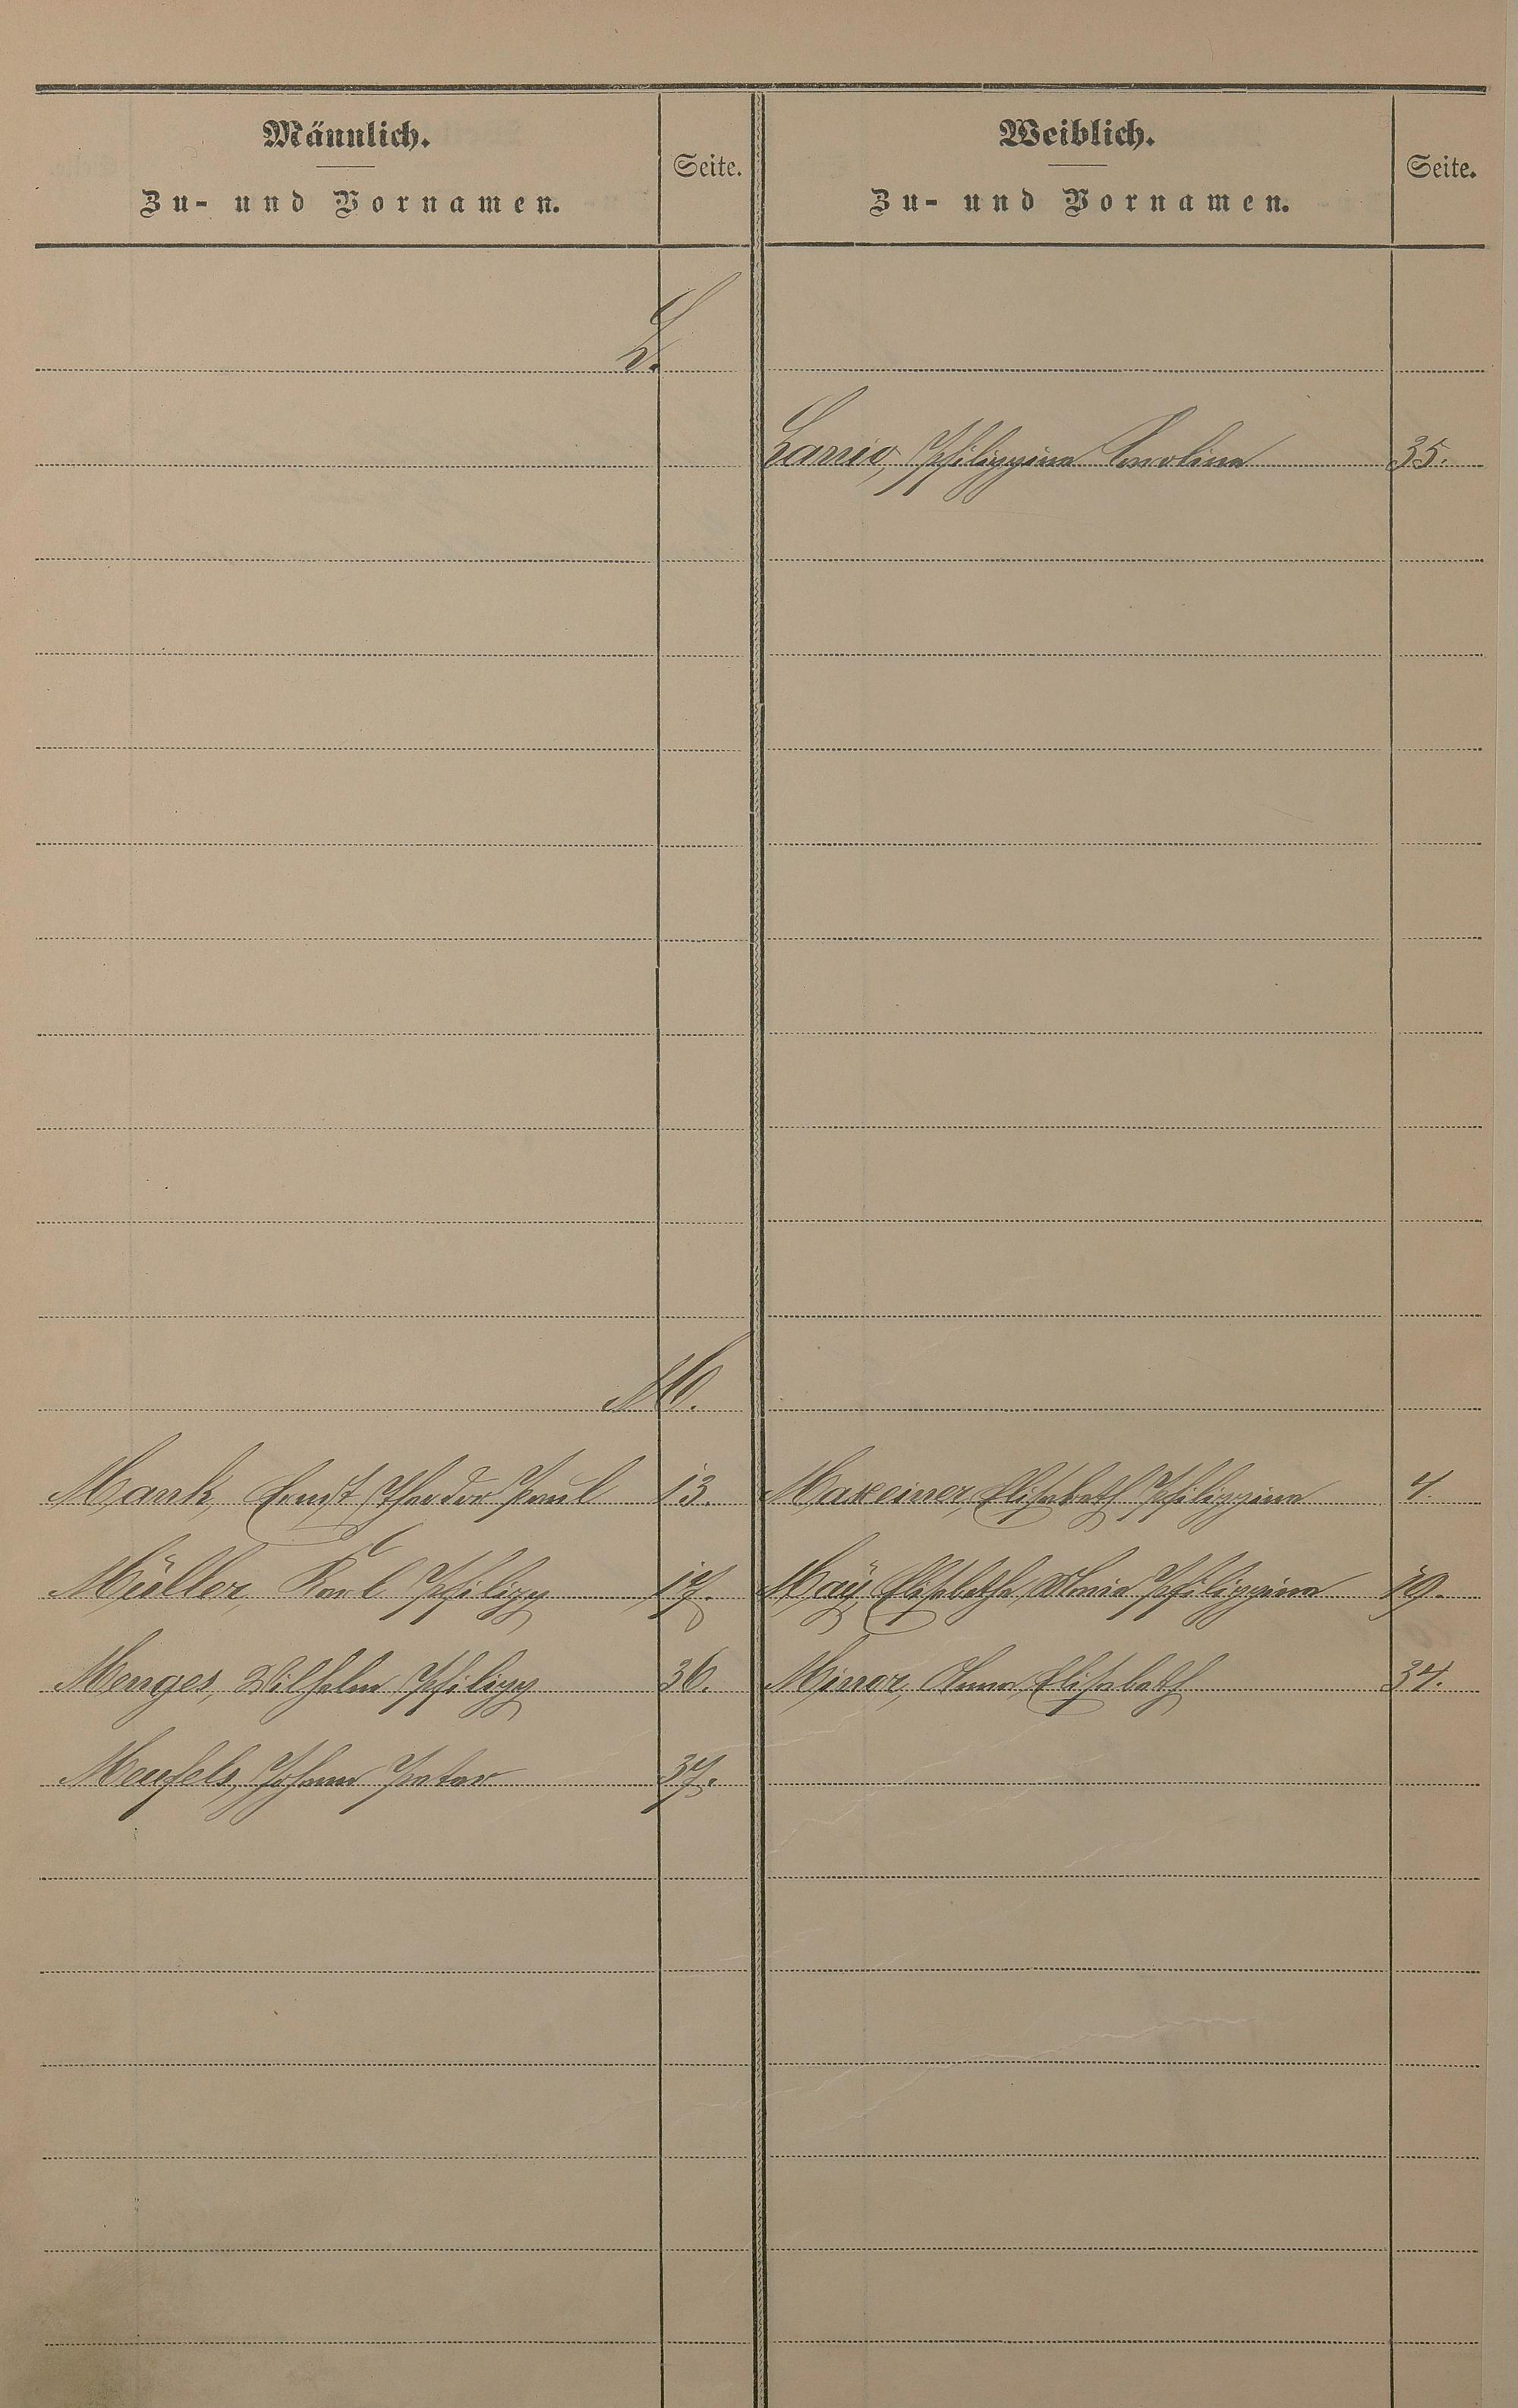 Männlich.
Zu- und Vornamen.
Seite.
Weiblich.
Zu- und Vornamen.
Seite.
L.
Philippine Caroline 35.
M.
Mank, Ernst Theodor Paul 13. Maxeiner, Elisabeth Philippine 4.
Müller, Karl Philipp 17. Maÿ, Elisabethe Maria Philippine 19.
Menges, Wilhelm Philipp 36. Minor, Anna Elisabeth 34.
Meufels, Johann Peter 37.